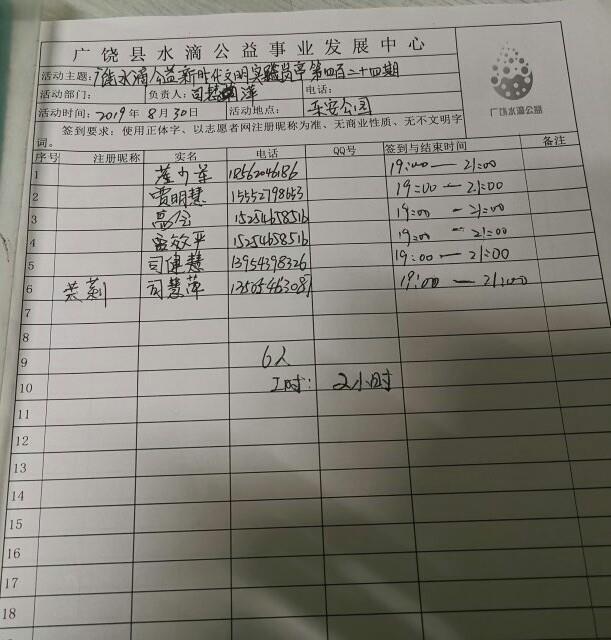 广饶县水滴公益事业发展中心
活动主题:广饶水滴公益新时代文明实践岗亭第四百二十四期
活动部门: 负责人: 电话:
活动时间:2019年8月30日 活动地点:乐安公园
广饶水滴公益
签到要求:使用正体字、以志愿者网注册昵称为准、无商业性质、无不文明字
词。
序号 注册昵称 实名 电话 QQ号 签到与结束时间 备注
1 19:00—21:00
2 雷明慧 15552798653 19:00—21:00
3 15254658516 19:00—21:00
4 15254658516 19:00—21:00
5 司健慧 13954398326 19:00—21:00
6 司慧萍 19:00—21:00
7
8
9 6人
10 工时:2小时
11
12
13
14
15
16
17
18